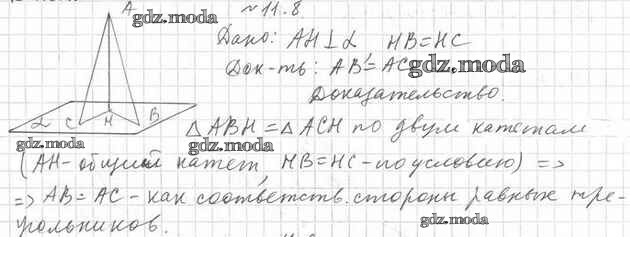 № 11.8
A gdz.moda
Дано: AH⊥α HB=HC
Док-ть: AB=AC gdz.moda
Доказательство.
α C H B
gdz.moda gdz.moda
△ABH=△ACH по двум катетам
(AH-общий катет, HB=HC-по условию) =>
=> AB=AC-как соответств. стороны равных тре-
угольников.
gdz.moda